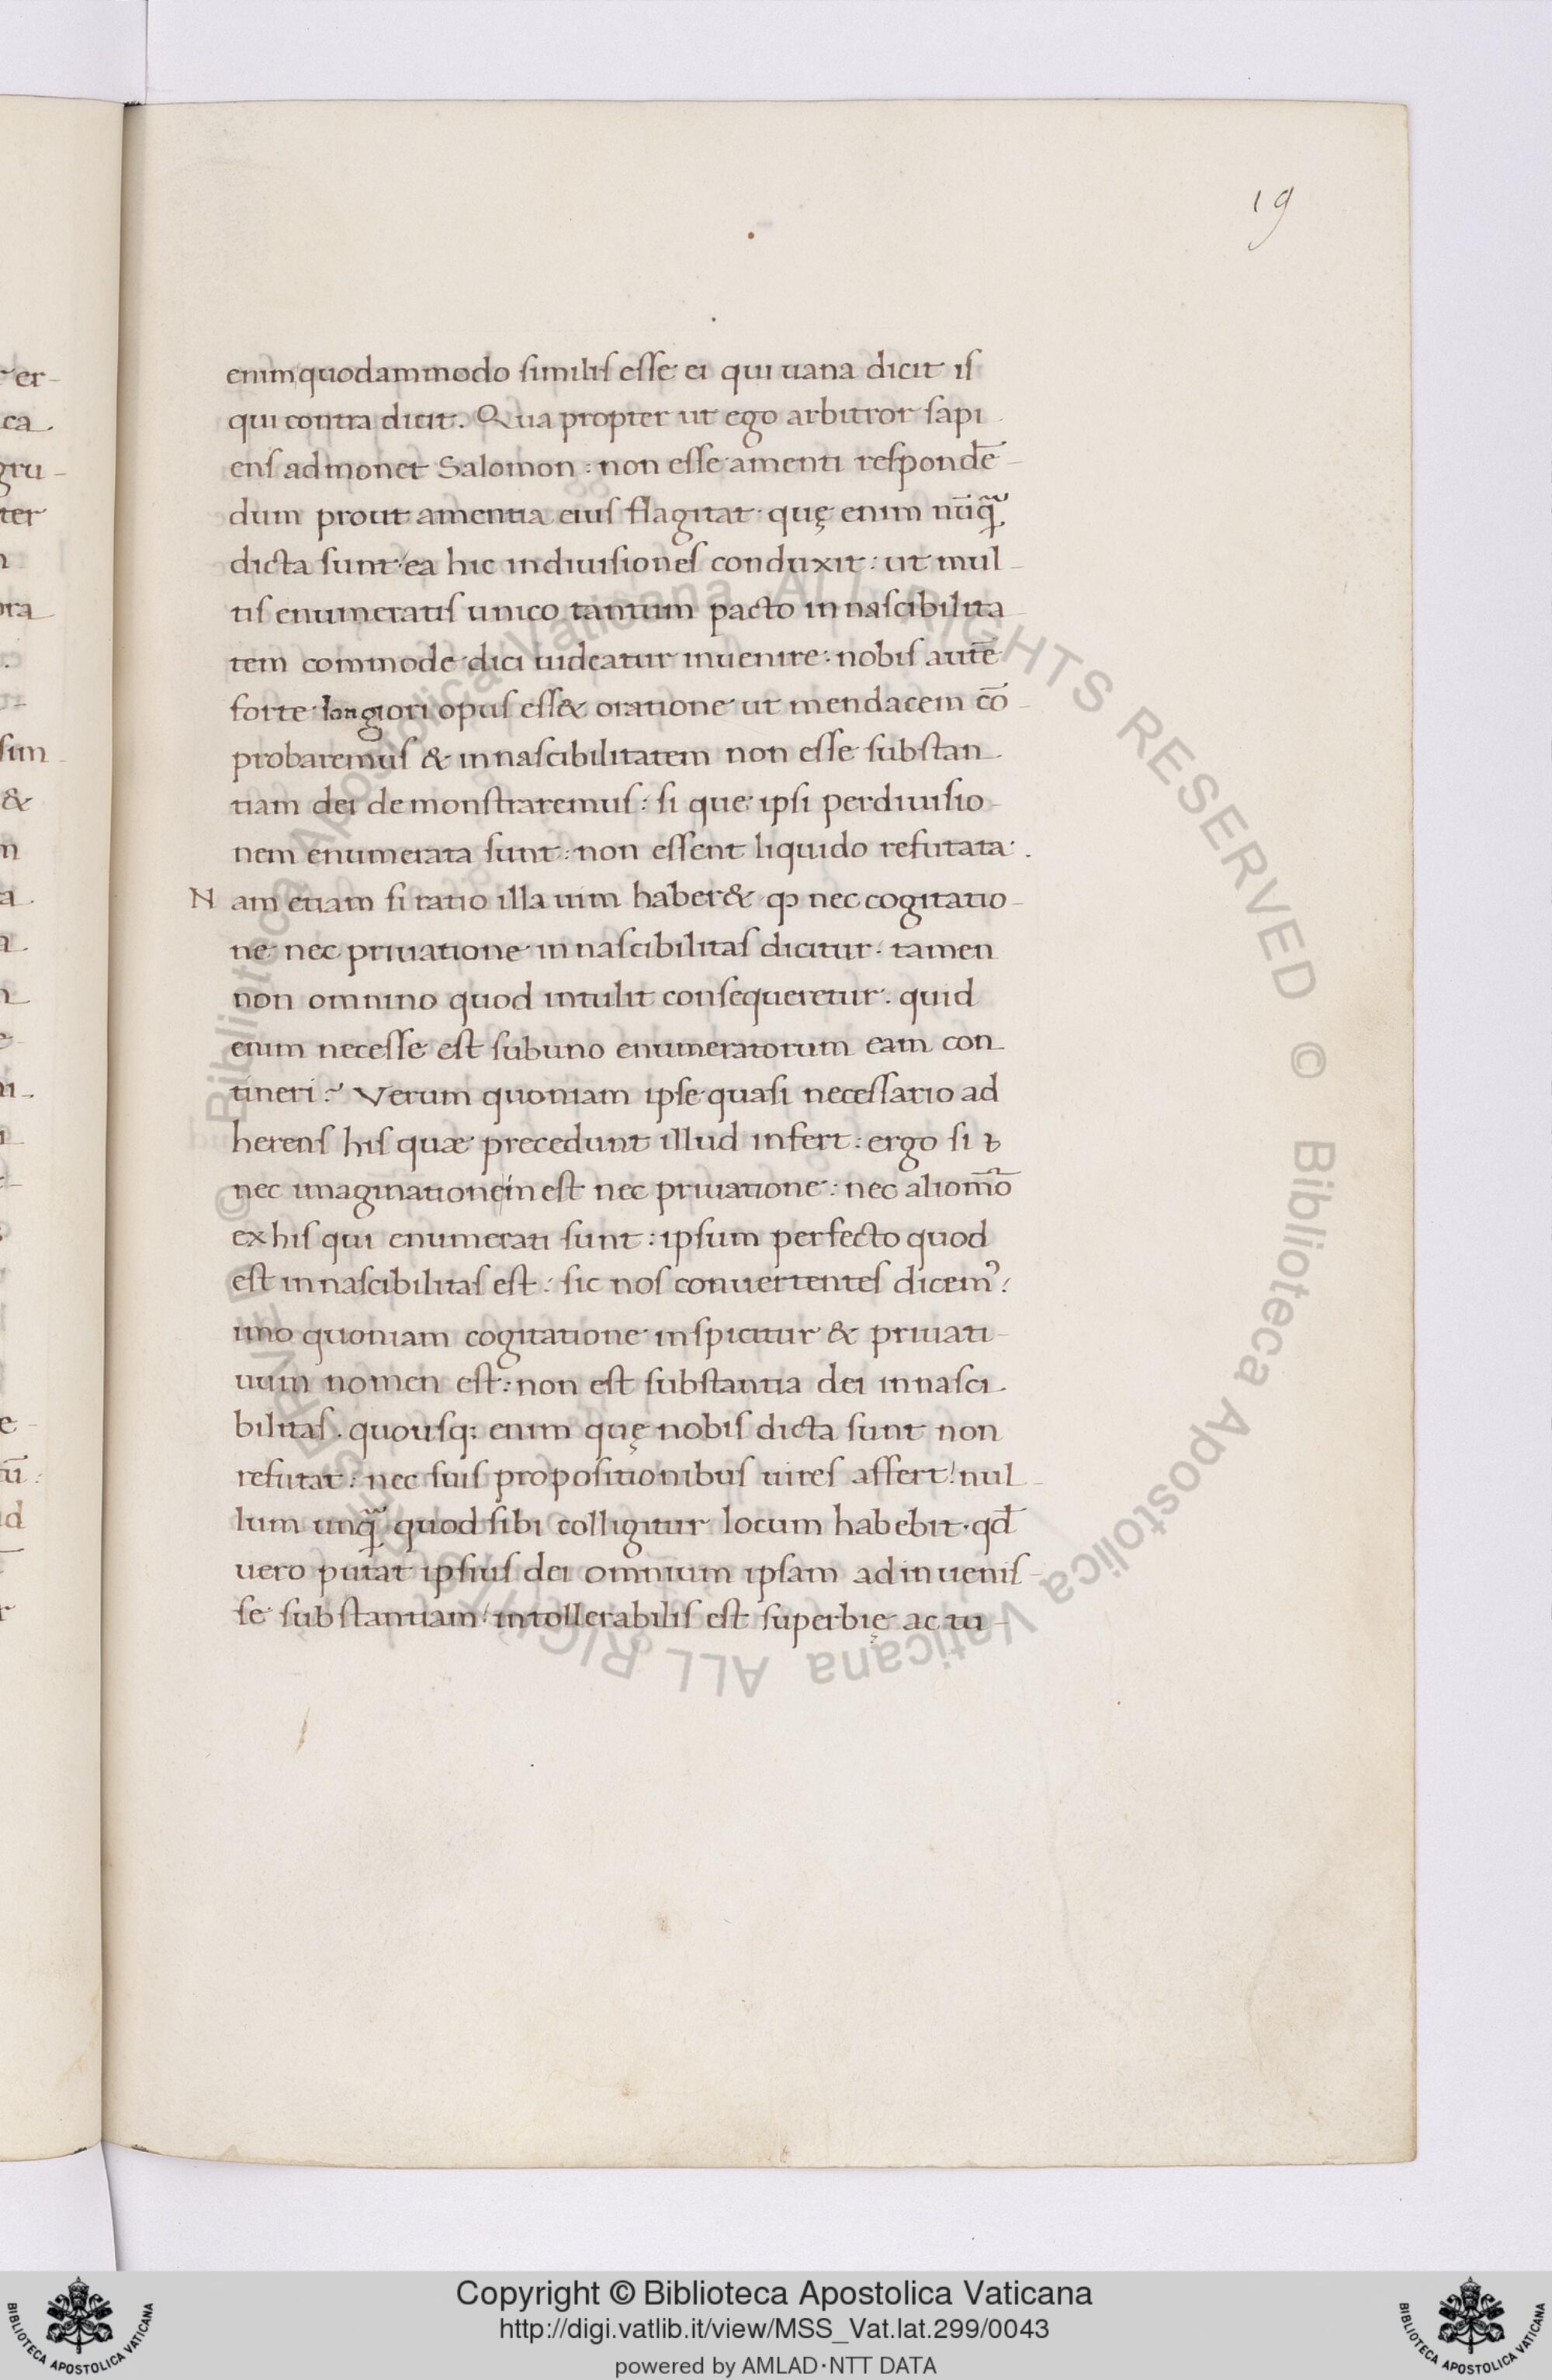 19
enim quodammodo similis esse ei qui uana dicit is
qui contra dicit. Qua propter ut ego arbitror sapi
ens ad monet Salomon : non esse amenti respondē-
dum prout amentia eius flagitat · quę enim
dicta sunt ea hic in diuisiones conduxit : ut mul-
tis enumeratis unico tantum pacto in nascibilita-
tem commode dici uideatur inuenire : nobis autē
forte longiori opus ess& oratione ut mendacem cō-
probaremus & in nascibilitatem non esse substan-
tiam dei de monstraremus : si que ipsi per diuisio-
nem enumerata sunt : non essent liquido refutata .
N am etiam si ratio illa uim haber& ꝙ nec cogitatio-
ne nec priuatione in nascibilitas dicitur · tamen
non omnino quod intulit consequeretur · quid
enim necesse est sub uno enumeratorum eam con-
tineri ? Verum quoniam ipse quasi necessario ad
herens his quæ precedunt illud infert : ergo si
nec imaginatione in est nec priuatione : nec alio mō
ex his qui enumerati sunt : ipsum perfecto quod
est in nascibilitas est : sic nos conuertentes dicem᾽ :
imo quoniam cogitatione inspicitur & priuati-
uum nomen est : non est substantia dei in nasci-
bilitas . quousq; enim quę nobis dicta sunt non
refutat : nec suis propositionibus uires affert ! nul-
lum unq̄ quod sibi colligitur locum habebit · qđ
uero putat ipsius dei omnium ipsam ad in uenis-
se substantiam ! intollerabilis est superbię ac tu-
er-
ca
gru-
ter
ora
sim
&
© Biblioteca Apostolica Vaticana ALL RIGHTS RESERVED © Biblioteca Apostolica Vaticana ALL RIGHTS RESERVED
Copyright © Biblioteca Apostolica Vaticana
http://digi.vatlib.it/view/MSS_Vat.lat.299/0043
powered by AMLAD·NTT DATA
BIBLIOTECA APOSTOLICA VATICANA
BIBLIOTECA APOSTOLICA VATICANA